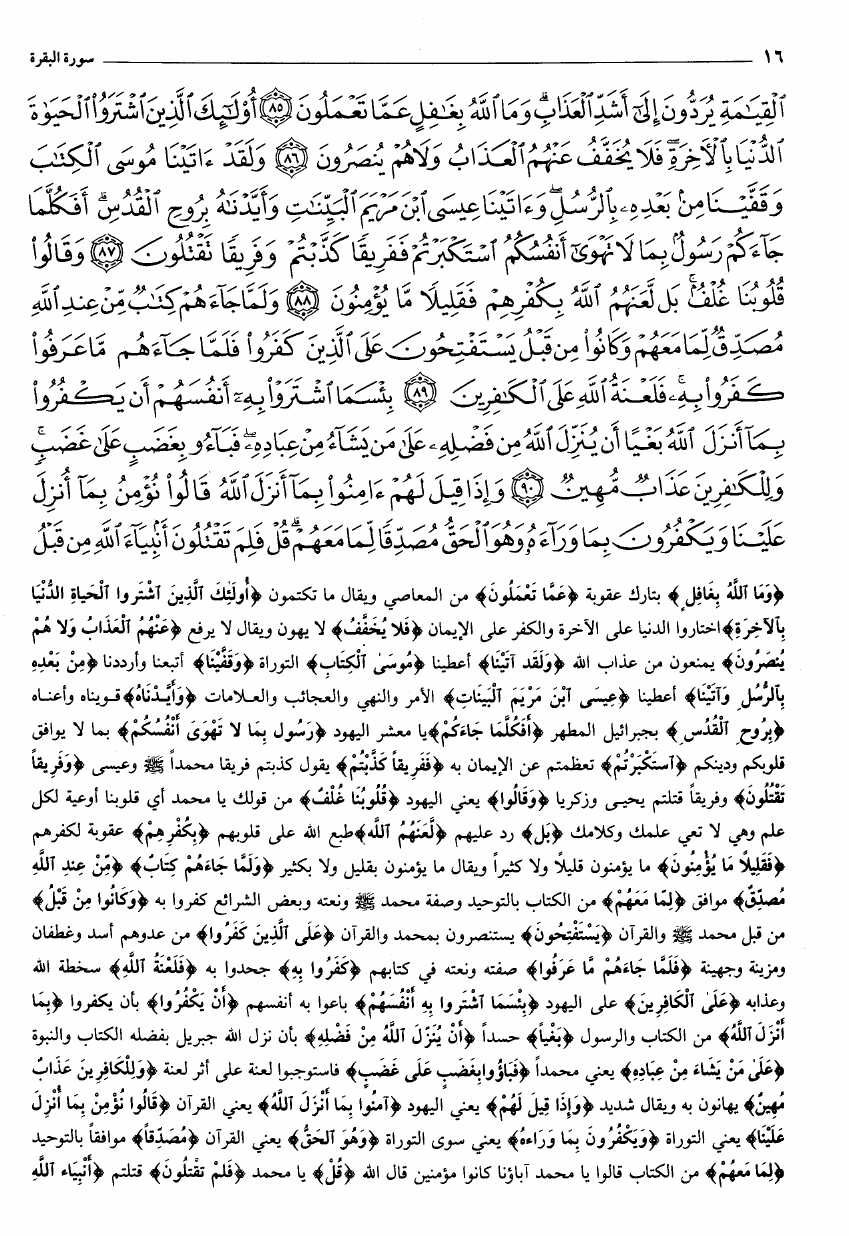 ١٦ سورة البقرة
ٱلْقِيَٰمَةِ يُرَدُّونَ إِلَىٰٓ أَشَدِّ ٱلْعَذَابِ ۗ وَمَا ٱللَّهُ بِغَٰفِلٍ عَمَّا تَعْمَلُونَ ٨٥ أُو۟لَٰٓئِكَ ٱلَّذِينَ ٱشْتَرَوُا۟ ٱلْحَيَوٰةَ
ٱلدُّنْيَا بِٱلْءَاخِرَةِ ۖ فَلَا يُخَفَّفُ عَنْهُمُ ٱلْعَذَابُ وَلَا هُمْ يُنصَرُونَ ٨٦ وَلَقَدْ ءَاتَيْنَا مُوسَى ٱلْكِتَٰبَ
وَقَفَّيْنَا مِنۢ بَعْدِهِۦ بِٱلرُّسُلِ ۖ وَءَاتَيْنَا عِيسَى ٱبْنَ مَرْيَمَ ٱلْبَيِّنَٰتِ وَأَيَّدْنَٰهُ بِرُوحِ ٱلْقُدُسِ ۗ أَفَكُلَّمَا
جَآءَكُمْ رَسُولٌۢ بِمَا لَا تَهْوَىٰٓ أَنفُسُكُمُ ٱسْتَكْبَرْتُمْ فَفَرِيقًا كَذَّبْتُمْ وَفَرِيقًا تَقْتُلُونَ ٨٧ وَقَالُوا۟
قُلُوبُنَا غُلْفٌۢ ۚ بَل لَّعَنَهُمُ ٱللَّهُ بِكُفْرِهِمْ فَقَلِيلًا مَّا يُؤْمِنُونَ ٨٨ وَلَمَّا جَآءَهُمْ كِتَٰبٌ مِّنْ عِندِ ٱللَّهِ
مُصَدِّقٌ لِّمَا مَعَهُمْ وَكَانُوا۟ مِن قَبْلُ يَسْتَفْتِحُونَ عَلَى ٱلَّذِينَ كَفَرُوا۟ فَلَمَّا جَآءَهُم مَّا عَرَفُوا۟
كَفَرُوا۟ بِهِۦ ۚ فَلَعْنَةُ ٱللَّهِ عَلَى ٱلْكَٰفِرِينَ ٨٩ بِئْسَمَا ٱشْتَرَوْا۟ بِهِۦٓ أَنفُسَهُمْ أَن يَكْفُرُوا۟
بِمَآ أَنزَلَ ٱللَّهُ بَغْيًا أَن يُنَزِّلَ ٱللَّهُ مِن فَضْلِهِۦ عَلَىٰ مَن يَشَآءُ مِنْ عِبَادِهِۦ ۖ فَبَآءُو بِغَضَبٍ عَلَىٰ غَضَبٍ ۚ
وَلِلْكَٰفِرِينَ عَذَابٌ مُّهِينٌ ٩٠ وَإِذَا قِيلَ لَهُمْ ءَامِنُوا۟ بِمَآ أَنزَلَ ٱللَّهُ قَالُوا۟ نُؤْمِنُ بِمَآ أُنزِلَ
عَلَيْنَا وَيَكْفُرُونَ بِمَا وَرَآءَهُۥ وَهُوَ ٱلْحَقُّ مُصَدِّقًا لِّمَا مَعَهُمْ ۗ قُلْ فَلِمَ تَقْتُلُونَ أَنۢبِيَآءَ ٱللَّهِ مِن قَبْلُ
﴿وَمَا ٱللَّهُ بِغَافِلٍ﴾ بتارك عقوبة ﴿عَمَّا تَعْمَلُونَ﴾ من المعاصي ويقال ما تكتمون ﴿أُولَئِكَ ٱلَّذِينَ ٱشْتَروا ٱلْحَياةَ الدُّنْيَا
بِٱلآخِرَةِ﴾ اختاروا الدنيا على الآخرة والكفر على الإيمان ﴿فَلا يُخَفَّفُ﴾ لا يهون ويقال لا يرفع ﴿عَنْهُمُ ٱلْعَذَابُ وَلا هُمْ
يُنصَرُونَ﴾ يمنعون من عذاب الله ﴿وَلَقَد آتَيْنَا﴾ أعطينا ﴿مُوسَىٰ ٱلْكِتَابَ﴾ التوراة ﴿وَقَفَّيْنَا﴾ أتبعنا وأرددنا ﴿مِنْ بَعْدِهِ
بِٱلرُّسُلِ وَآتَيْنَا﴾ أعطينا ﴿عِيسَى ٱبْنَ مَرْيَمَ ٱلْبَيِّنَاتِ﴾ الأمر والنهي والعجائب والعلامات ﴿وَأَيَّدْنَاهُ﴾ قويناه وأعناه
﴿بِرُوحِ ٱلْقُدُسِ﴾ بجبرائيل المطهر ﴿أَفَكُلَّمَا جَاءَكُمْ﴾ يا معشر اليهود ﴿رَسُول بِمَا لا تَهْوَىٰ أَنْفُسُكُمْ﴾ بما لا يوافق
قلوبكم ودينكم ﴿ٱسْتَكْبَرْتُمْ﴾ تعظمتم عن الإيمان به ﴿فَفَرِيقاً كَذَّبْتُمْ﴾ يقول كذبتم فريقا محمداً ﷺ وعيسى ﴿وَفَرِيقاً
تَقْتُلُونَ﴾ وفريقاً قتلتم يحيى وزكريا ﴿وَقَالُوا﴾ يعني اليهود ﴿قُلُوبُنَا غُلْفٌ﴾ من قولك يا محمد أي قلوبنا أوعية لكل
علم وهي لا تعي علمك وكلامك ﴿بَل﴾ رد عليهم ﴿لَّعَنَهُمُ ٱلله﴾ طبع الله على قلوبهم ﴿بِكُفْرِهِمْ﴾ عقوبة لكفرهم
﴿فَقَلِيلًا مَا يُؤْمِنُونَ﴾ ما يؤمنون قليلاً ولا كثيراً ويقال ما يؤمنون بقليل ولا بكثير ﴿وَلَمَّا جَاءَهُمْ كِتَابٌ﴾ ﴿مِّنْ عِندِ اللَّهِ
مُصدِّقٌ﴾ موافق ﴿لِمَّا مَعَهُمْ﴾ من الكتاب بالتوحيد وصفة محمد ﷺ ونعته وبعض الشرائع كفروا به ﴿وَكَانُوا مِنْ قَبْلُ﴾
من قبل محمد ﷺ والقرآن ﴿يَسْتَفْتِحُونَ﴾ يستنصرون بمحمد والقرآن ﴿عَلَى ٱلَّذِينَ كَفَرُوا﴾ من عدوهم أسد وغطفان
ومزينة وجهينة ﴿فَلَمَّا جَاءَهُمْ مَّا عَرَفُوا﴾ صفته ونعته في كتابهم ﴿كَفَرُوا بِهِ﴾ جحدوا به ﴿فَلَعْنَةُ اللَّهِ﴾ سخطة الله
وعذابه ﴿عَلَىٰ ٱلْكَافِرِينَ﴾ على اليهود ﴿بِئْسَمَا ٱشْتَروا بِهِ أَنْفُسَهُمْ﴾ باعوا به أنفسهم ﴿أَنْ يَكْفُرُوا﴾ بأن يكفروا ﴿بِمَا
أَنْزَلَ ٱللَّهُ﴾ من الكتاب والرسول ﴿بَغْياً﴾ حسداً ﴿أَنْ يُنَزِّلَ ٱللَّهُ مِنْ فَضْلِهِ﴾ بأن نزل الله جبريل بفضله الكتاب والنبوة
﴿عَلَىٰ مَنْ يَشَاءَ مِنْ عِبَادِهِ﴾ يعني محمداً ﴿فَبَاؤُوا بِغَضَبٍ عَلَى غَضَبٍ﴾ فاستوجبوا لعنة على أثر لعنة ﴿وَلِلْكَافِرِينَ عَذَابٌ
مُهِينٌ﴾ يهانون به ويقال شديد ﴿وَإِذَا قِيلَ لَهُمْ﴾ يعني اليهود ﴿آمنُوا بِمَا أَنْزَلَ ٱللَّهُ﴾ يعني القرآن ﴿قَالُوا نُؤْمِنُ بِمَا أُنْزِلَ
عَلَيْنَا﴾ يعني التوراة ﴿وَيَكْفُرُونَ بِمَا وَرَاءهُ﴾ يعني سوى التوراة ﴿وَهُوَ ٱلحَقُّ﴾ يعني القرآن ﴿مُصَدِّقاً﴾ موافقاً بالتوحيد
﴿لِمَا مَعَهُمْ﴾ من الكتاب قالوا يا محمد آباؤنا كانوا مؤمنين قال الله ﴿قُلْ﴾ يا محمد ﴿فَلِمَ تَقْتُلُونَ﴾ قتلتم ﴿أَنْبِيَاء اللَّهِ